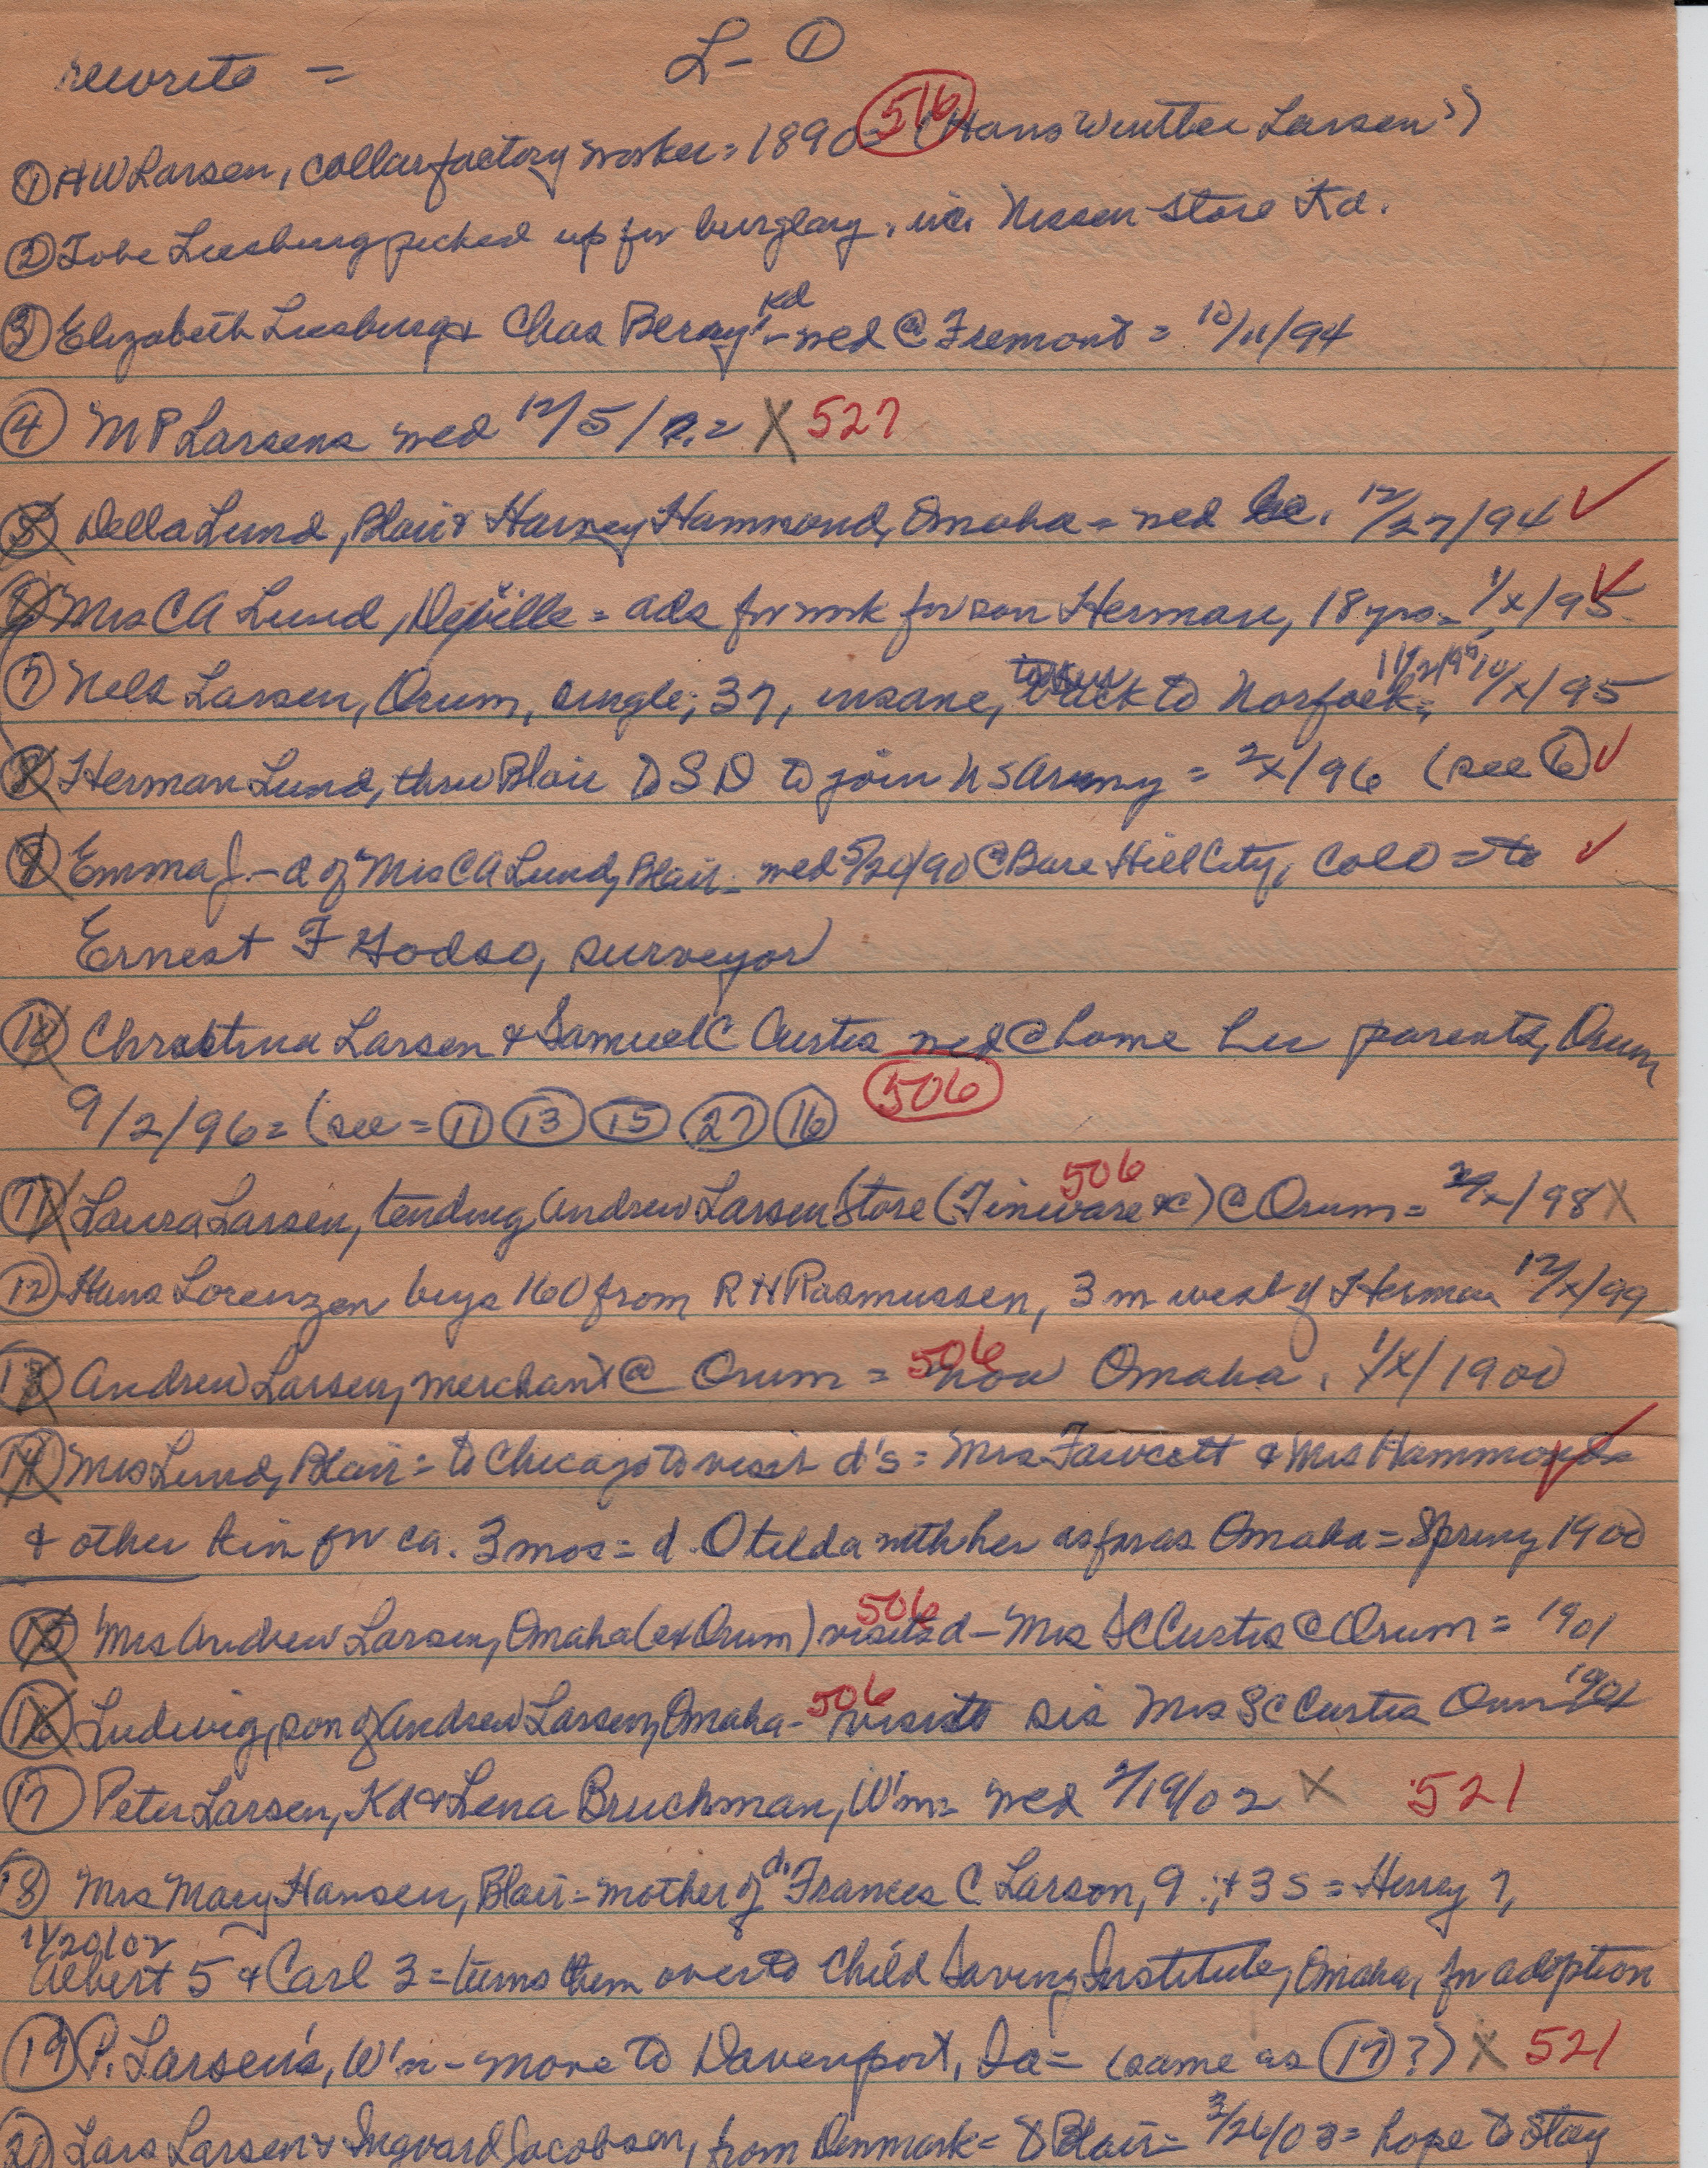 rewrite = L- ①
① HW Larsen, collar factory worker = 1890 = 516 (Hans Wutter Larsen?)
② Tobe Leesburg picked up for burglary, inc. Nissen Store Kd.
③ Elizabeth Leesburg & Chas Berry, Kd - wed @ Fremont = 12/11/94
④ M P Larsens wed 12/5/ = X 527
⑤ Della Lund, Blair & Harvey Hammond, Omaha = wed 12/27/94 ✓
⑥ Mrs CA Lund, = ads for work for son Herman, 18 yrs = 1/x/95 ✓
⑦ Nels Larsen, Orum, single, 37, insane, back to Norfolk, 11/21/95 10/x/95
⑧ Herman Lund, thru Blair to S D to join U S Army = 2/x/96 (see ⑥ ✓
⑨ Emma J. - d of Mrs CA Lund, Blair - wed 5/20/90 @ Bare Hill City, Colo = to ✓
Ernest F Hodso, surveyor
⑩ Christina Larsen & Samuel C Curtis wed @ home her parents, Orum
9/2/96 = (see = ⑪ ⑬ ⑮ ㉗ ⑯ 506
⑪ Laura Larsen, tending Andrew Larsen Store (Tinware &c) @ Orum = /x/98 X 506
⑫ Hans Lorenzen buys 160 from R H Rasmussen, 3 m west of Herman 12/x/99
⑬ Andrew Larsen, merchant @ Orum = 506 now Omaha, 1/x/1900
⑭ Mrs Lund, Blair = to Chicago to visit d's = Mrs Fawcett & Mrs Hammond ✓
& other kin for ca. 3 mos = d. Otelda with her as far as Omaha = Spring 1900
⑮ Mrs Andrew Larsen, Omaha (ex Orum) visits d - Mrs SC Curtis @ Orum = 1901 506
⑯ Ludwig, son of Andrew Larsen, Omaha - 506 visits sis Mrs SC Curtis Orum 1901
⑰ Peter Larsen, Kd & Lena Bruchman, W'm = wed 2/19/02 X 521
⑱ Mrs Mary Hansen, Blair = mother of d. Frances C. Larson, 9 ; + 3 s = Henry 7,
11/20/02
Albert 5 & Carl 3 = turns them over to Child Saving Institute, Omaha, for adoption
⑲ P. Larsen's, W'n - move to Davenport, Ia = (same as ⑰ ?) X 521
⑳ Lars Larsen & Ingvard Jacobsen, from Denmark = to Blair = 3/26/03 = hope to stay